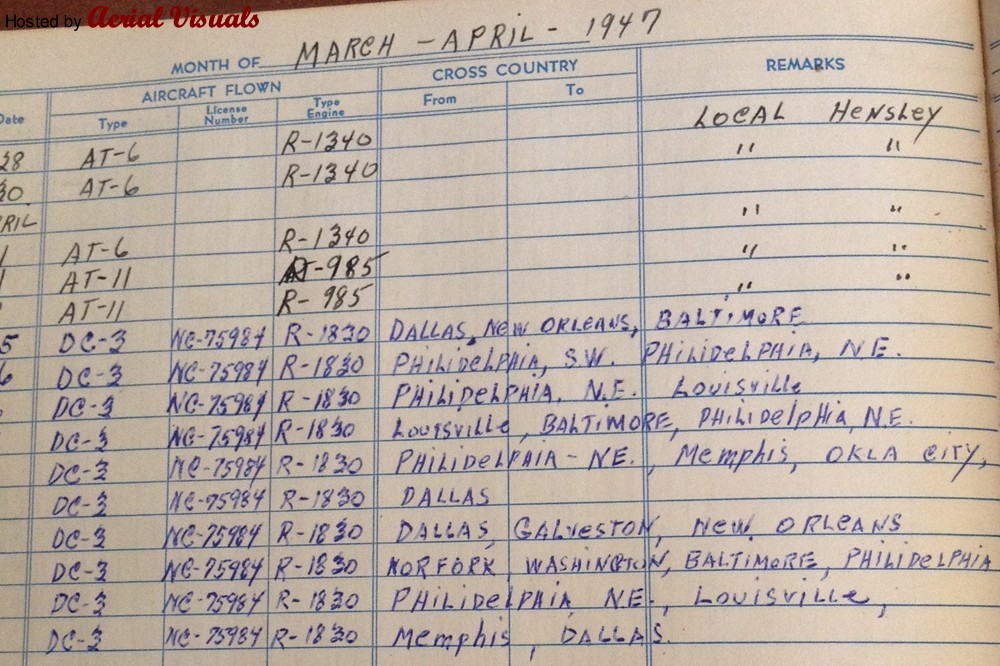 Hosted by Aerial Visuals
MONTH OF MARCH - APRIL - 1947
AIRCRAFT FLOWN CROSS COUNTRY REMARKS
Date Type License Number Type Engine From To
LOCAL HENSLEY
28 AT-6 R-1340 " "
30 AT-6 R-1340
RIL " "
1 AT-6 R-1340 " "
1 AT-11 R-985 " "
AT-11 R-985
5 DC-3 NC-75984 R-1830 DALLAS, NEW ORLEANS, BALTIMORE
6 DC-3 NC-75984 R-1830 PHILIDELPHIA, S.W. PHILIDELPHIA, N.E.
DC-3 NC-75984 R-1830 PHILIDELPHIA, N.E. LOUISVILLE
DC-3 NC-75984 R-1830 LOUISVILLE, BALTIMORE, PHILIDELPHIA, N.E.
DC-3 NC-75984 R-1830 PHILIDELPHIA - NE., MEMPHIS, OKLA CITY,
DC-3 NC-75984 R-1830 DALLAS
DC-3 NC-75984 R-1830 DALLAS, GALVESTON, NEW ORLEANS
DC-3 NC-75984 R-1830 NORFORK WASHINGTON, BALTIMORE, PHILIDELPHIA
DC-3 NC-75984 R-1830 PHILIDELPHIA N.E., LOUISVILLE,
DC-3 NC-75984 R-1830 MEMPHIS, DALLAS.